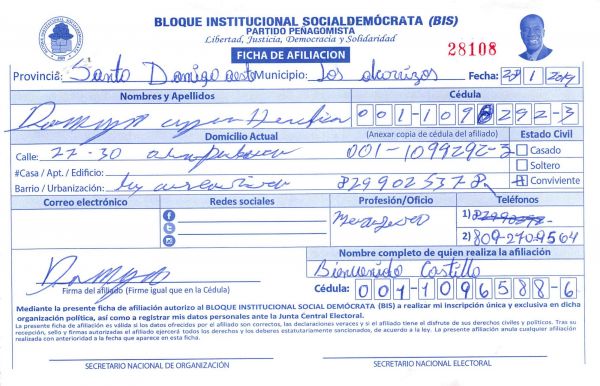 BLOQUE INSTITUCIONAL SOCIALDEMÓCRATA (BIS)
PARTIDO PEÑAGOMISTA
Libertad, Justicia, Democracia y Solidaridad
FICHA DE AFILIACION
28108
Provincia: Santo Domigo oesto Municipio: Los alcarrizos Fecha: 28 1 2019
Nombres y Apellidos Cédula
001-109 292-3
Domicilio Actual (Anexar copia de cédula del afiliado) Estado Civil
Calle: 27-30 001-1099292-3 Casado
#Casa / Apt. / Edificio: Soltero
Barrio / Urbanización: 8299025378 Conviviente
Correo electrónico Redes sociales Profesión/Oficio Teléfonos
1)
2) 809-270-9564
Nombre completo de quien realiza la afiliación
Bienvenido Castillo
Firma del afiliado (Firme igual que en la Cédula) Cédula: 001-1096588-6
Mediante la presente ficha de afiliación autorizo al BLOQUE INSTITUCIONAL SOCIAL DEMÓCRATA (BIS) a realizar mi inscripción única y exclusiva en dicha
organización política, así como a registrar mis datos personales ante la Junta Central Electoral.
La presente ficha de afiliación es válida si los datos ofrecidos por el afiliado son correctos, las declaraciones veraces y si el afiliado tiene el disfrute de sus derechos civiles y políticos. Tras su
recepción, sello y firmas autorizadas el afiliado ejercerá todos los derechos y los deberes estatutariamente sancionados, de acuerdo a la ley. La presente afiliación anula cualquier afiliación
realizada con anterioridad a la fecha que aparece en esta ficha.
SECRETARIO NACIONAL DE ORGANIZACIÓN SECRETARIO NACIONAL ELECTORAL